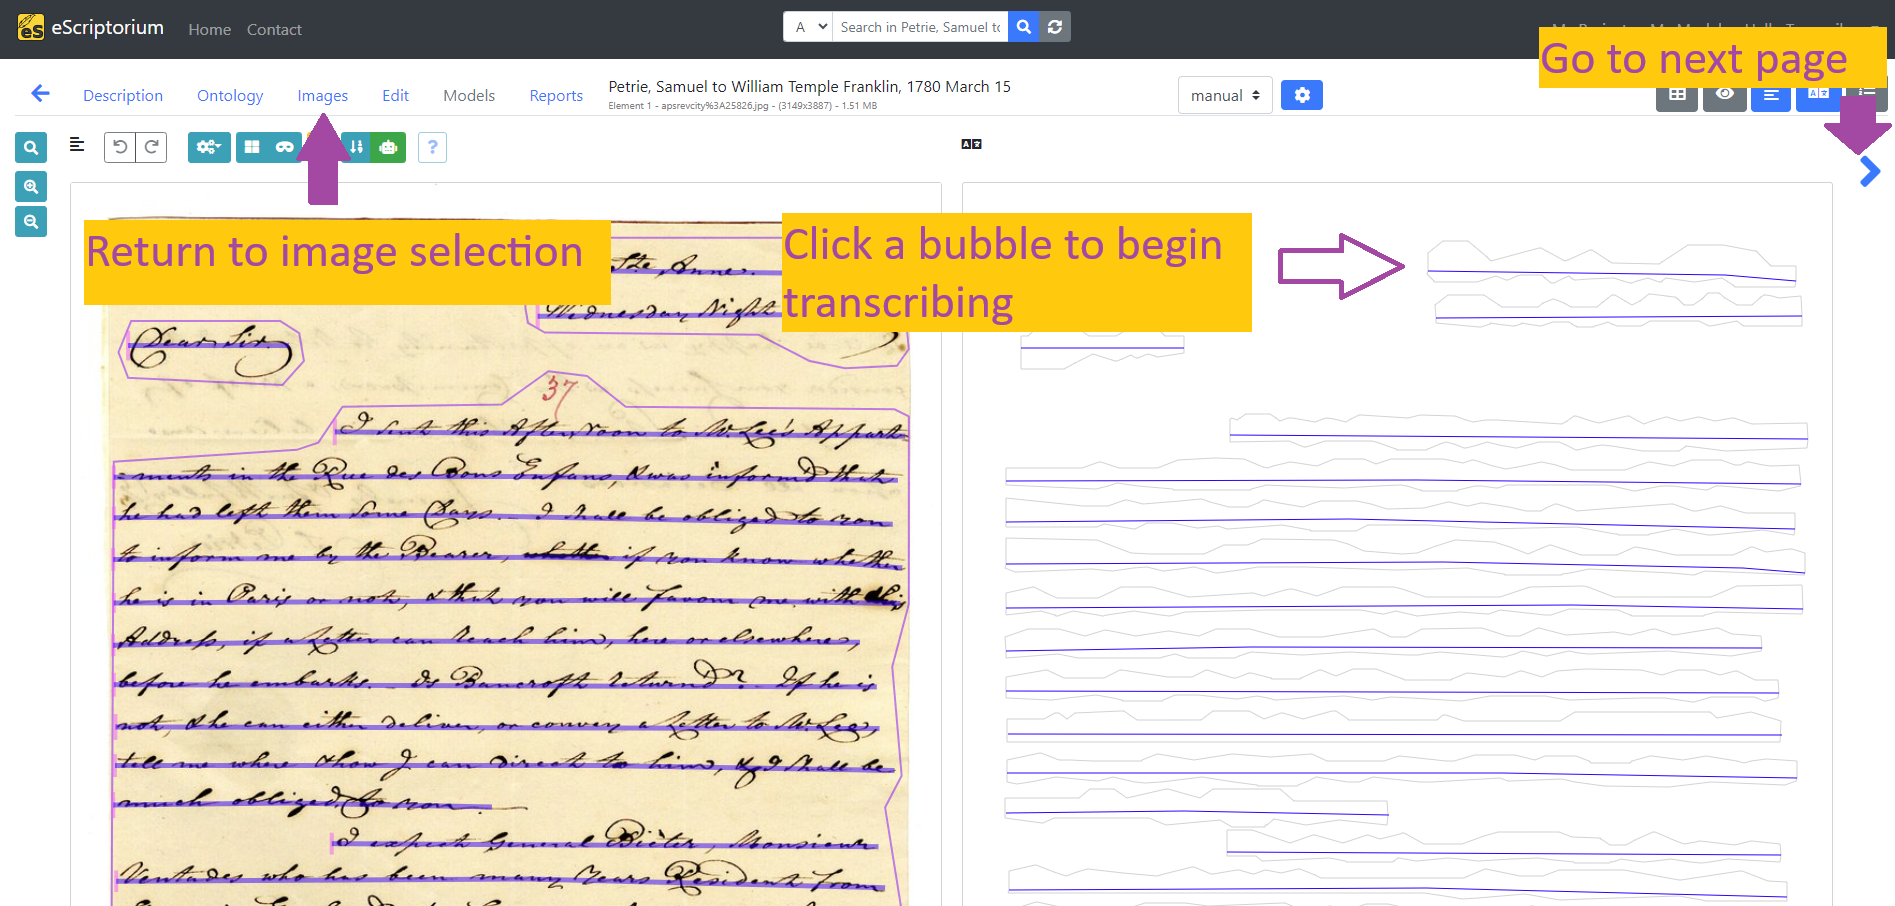 eScriptorium Home Contact A Search in Petrie, Samuel to
Go to next page
Description Ontology Images Edit Models Reports
Petrie, Samuel to William Temple Franklin, 1780 March 15
Element 1 - apsrevcity%3A25826.jpg - (3149x3887) - 1.51 MB
manual
?
Return to image selection
Click a bubble to begin
transcribing
Ste, Anne.
Wednesday Night
Dear Sir
37
I sent this Afternoon to Mr. Lee's Appart-
-ments in the Rue des Bons Enfans, & was inform'd that
he had left them some Days. - I shall be obliged to you
to inform me by the Bearer, whether if you know whether
he is in Paris or not, & that you will favour me with his
Address, if a Letter can reach him, here or elsewhere,
before he embarks. - Is Bancroft return'd? - If he is
not, & he can either deliver, or convey a Letter to Mr. Lee,
tell me where & how I can direct to him, & I shall be
much obliged to you
I expect General Bieter, Monsieur
Ventades who has been many Years Resident from